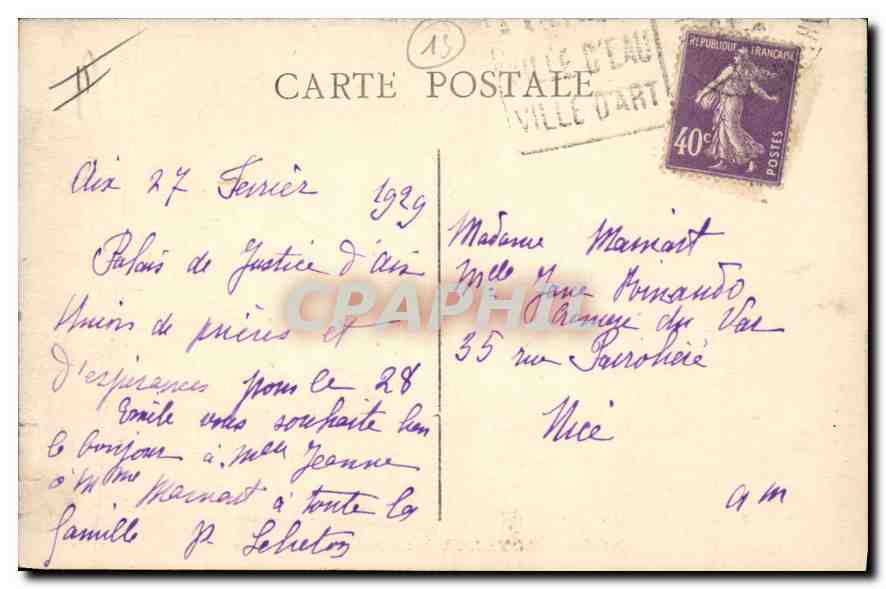 13
VILLE D'EAU
VILLE D'ART
RÉPUBLIQUE FRANÇAISE
40c
POSTES
CARTE POSTALE
Aix 27 Fevrier 1929
Palais de Justice d'Aix
Union de prières et
d'espérances pour le 28
Emile vous souhaite bien
le bonjour à Melle Jeanne
à Mme Mansart à toute la
famille P.
Madame Mansart
Melle Jane
du Var
35 rue Pairolière
Nice
am
CPAPHIL